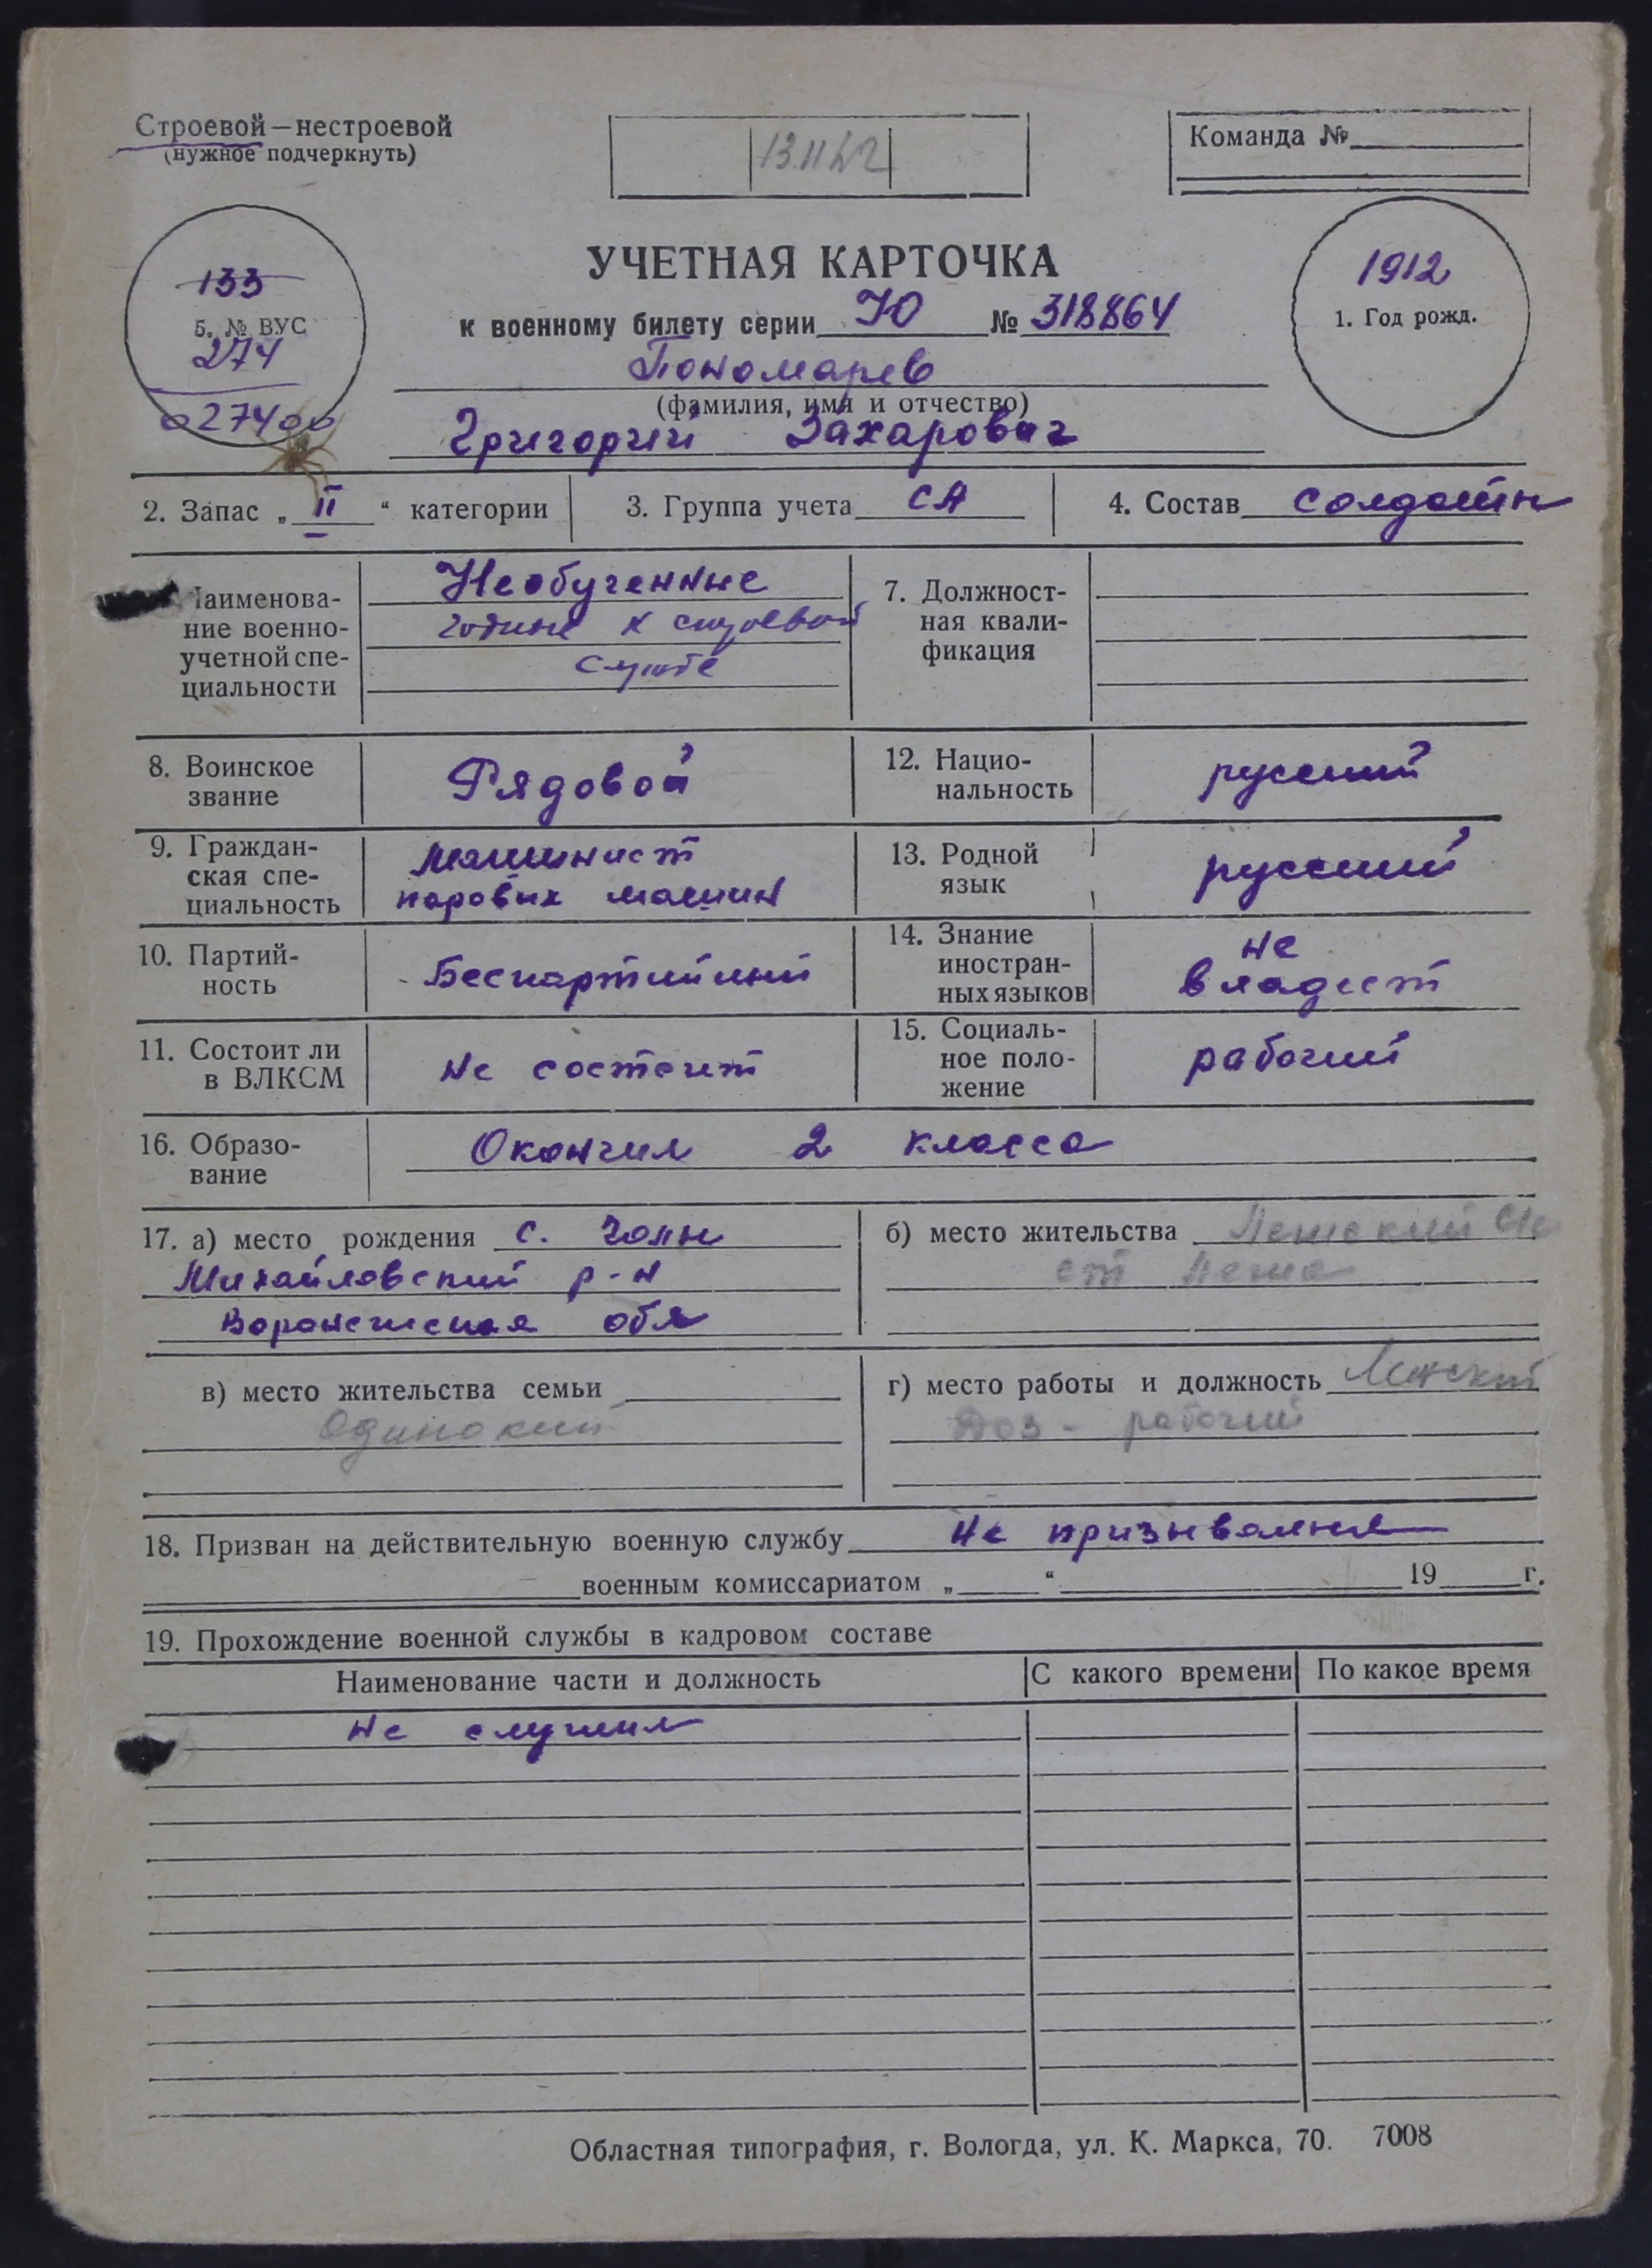 Строевой—нестроевой
(нужное подчеркнуть)
Команда №
133
5. № ВУС
274
027400
УЧЕТНАЯ КАРТОЧКА
к военному билету серии Ю № 318864
Пономарев
(фамилия, имя и отчество)
Григорий Захарович
1912
1. Год рожд.
2. Запас „II“ категории
3. Группа учета СА
4. Состав солдаты
Наименова-
ние военно-
учетной спе-
циальности
Необученные
годные к строевой
службе
7. Должност-
ная квали-
фикация
8. Воинское
звание
Рядовой
12. Нацио-
нальность
русский
9. Граждан-
ская спе-
циальность
машинист
паровых машин
13. Родной
язык
русский
10. Партий-
ность
Беспартийный
14. Знание
иностран-
ных языков
не
владеет
11. Состоит ли
в ВЛКСМ
не состоит
15. Социаль-
ное поло-
жение
рабочий
16. Образо-
вание
Окончил 2 класса
17. а) место рождения с.
Михайловский р-н
Воронежская обл
б) место жительства
ст
в) место жительства семьи
Одинокий
г) место работы и должность
рабочий
18. Призван на действительную военную службу не призывался
военным комиссариатом „ “ 19 г.
19. Прохождение военной службы в кадровом составе
Наименование части и должность
С какого времени
По какое время
не служил
Областная типография, г. Вологда, ул. К. Маркса, 70. 7008